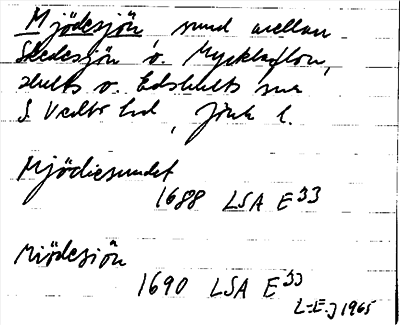 Mjödesjön sund mellan
Skedesjön o. Mycklaflon,
Hults o. Edshults snr
S Vedbo hd, Jönk l.
Mjödiesundet
1688 LSA E33
Miödesiön
1690 LSA E33
L-E.J 1965